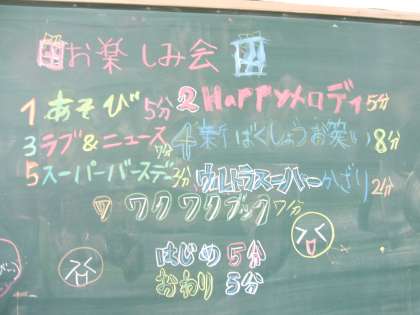 お楽しみ会
1 あそび 5分 2 Happyメロディ 5分
3 ラブ&ニュース 7分 4 新ばくしょうお笑い 8分
5 スーパーバースデー 3分 ウルトラスーパーかざり 2分
7 ワクワクブック 7分
はじめ 5分
おわり 5分